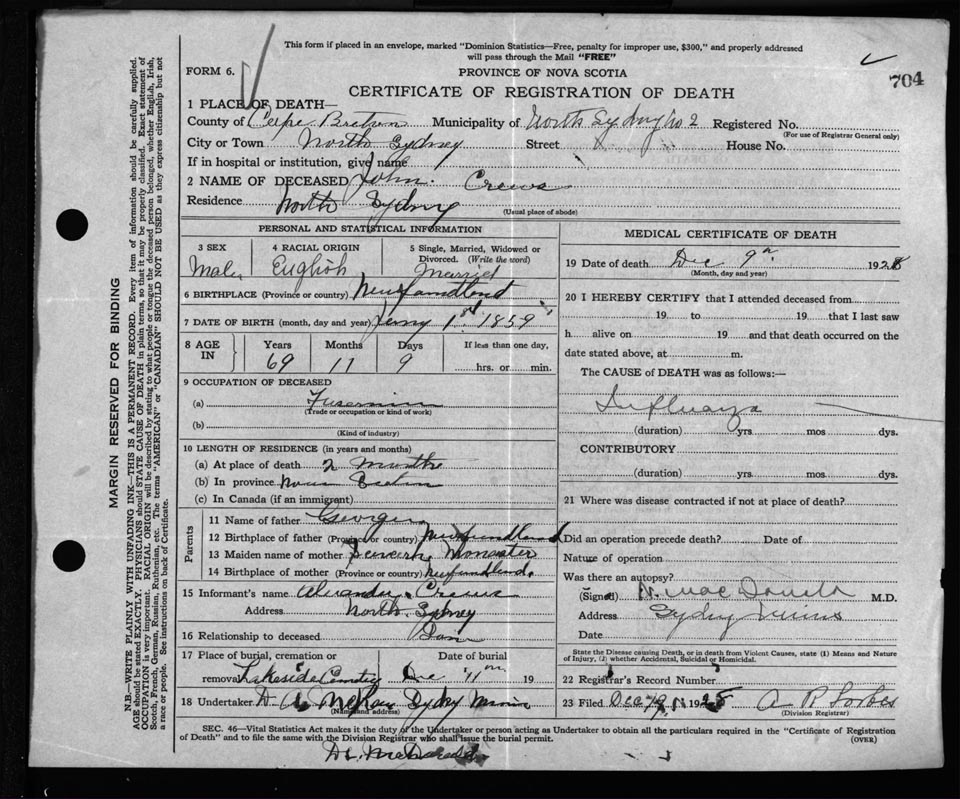 This form if placed in an envelope, marked "Dominion Statistics—Free, penalty for improper use, $300," and properly addressed
will pass through the Mail "FREE"
704
FORM 6.
PROVINCE OF NOVA SCOTIA
CERTIFICATE OF REGISTRATION OF DEATH
1 PLACE OF DEATH—
County of Cape Breton Municipality of North Sydney No 2 Registered No.
(For use of Registrar General only)
City or Town North Sydney Street House No.
If in hospital or institution, give name
2 NAME OF DECEASED John Crews
Residence North Sydney
(Usual place of abode)
PERSONAL AND STATISTICAL INFORMATION
3 SEX 4 RACIAL ORIGIN 5 Single, Married, Widowed or
Divorced. (Write the word)
Male English Married
6 BIRTHPLACE (Province or country) Newfandlond
7 DATE OF BIRTH (month, day and year) 1st 1859
8 AGE IN Years Months Days If less than one day,
69 11 9 hrs. or min.
9 OCCUPATION OF DECEASED
(a)
(Trade or occupation or kind of work)
(b)
(Kind of industry)
10 LENGTH OF RESIDENCE (in years and months)
(a) At place of death 2 Months
(b) In province
(c) In Canada (if an immigrant)
Parents
11 Name of father George
12 Birthplace of father (Province or country) Newfundland
13 Maiden name of mother
14 Birthplace of mother (Province or country) Newfundland.
15 Informant's name Crews
Address North Sydney
16 Relationship to deceased
17 Place of burial, cremation or Date of burial
removal Lakeside Cemetery Dec 11 19
18 Undertaker Sydney Mines
(Name and address)
MEDICAL CERTIFICATE OF DEATH
19 Date of death Dec 9th 1928
(Month, day and year)
20 I HEREBY CERTIFY that I attended deceased from
19 to 19 that I last saw
h alive on 19 and that death occurred on the
date stated above, at m.
The CAUSE of DEATH was as follows:—
Influenza
(duration) yrs. mos dys.
CONTRIBUTORY
(duration) yrs. mos. dys.
21 Where was disease contracted if not at place of death?
Did an operation precede death? Date of
Nature of operation
Was there an autopsy?
(Signed) M.D.
Address Sydney Mines
Date
State the Disease causing Death, or in death from Violent Causes, state (1) Means and Nature
of Injury, (2) whether Accidental, Suicidal or Homicidal.
22 Registrar's Record Number
23 Filed Dec 1928 A R Forbes
(Division Registrar)
SEC. 46—Vital Statistics Act makes it the duty of the Undertaker or person acting as Undertaker to obtain all the particulars required in the "Certificate of Registration
of Death" and to file the same with the Division Registrar who shall issue the burial permit.
(OVER)
MARGIN RESERVED FOR BINDING
N.B.—WRITE PLAINLY WITH UNFADING INK—THIS IS A PERMANENT RECORD. Every item of information should be carefully supplied.
AGE should be stated EXACTLY. PHYSICIANS should STATE CAUSE OF DEATH in plain terms, so that it may be properly classified. Exact statement of
OCCUPATION is very important. RACIAL ORIGIN will be described by stating to what people or tongue the deceased person belonged, whether English, Irish,
Scotch, French, German, Russian, Ruthenian, etc. The terms "AMERICAN" or "CANADIAN" SHOULD NOT BE USED as they express citizenship but not
a race or people. See instructions on back of Certificate.